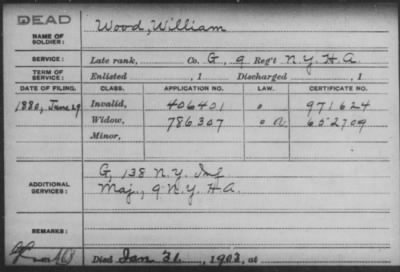 DEAD
NAME OF SOLDIER: Wood, William
SERVICE: Late rank, Co. G, 9 Reg't N.Y. H.A.
TERM OF SERVICE: Enlisted , 1 Discharged , 1
DATE OF FILING. CLASS. APPLICATION NO. LAW. CERTIFICATE NO.
1880, June 29 Invalid, 406401 971624
Widow, 786307 652709
Minor,
ADDITIONAL SERVICES: G, 138 N.Y. Inf
Maj., 9 N.Y. H.A.
REMARKS:
Died Jan 31, 1903, at